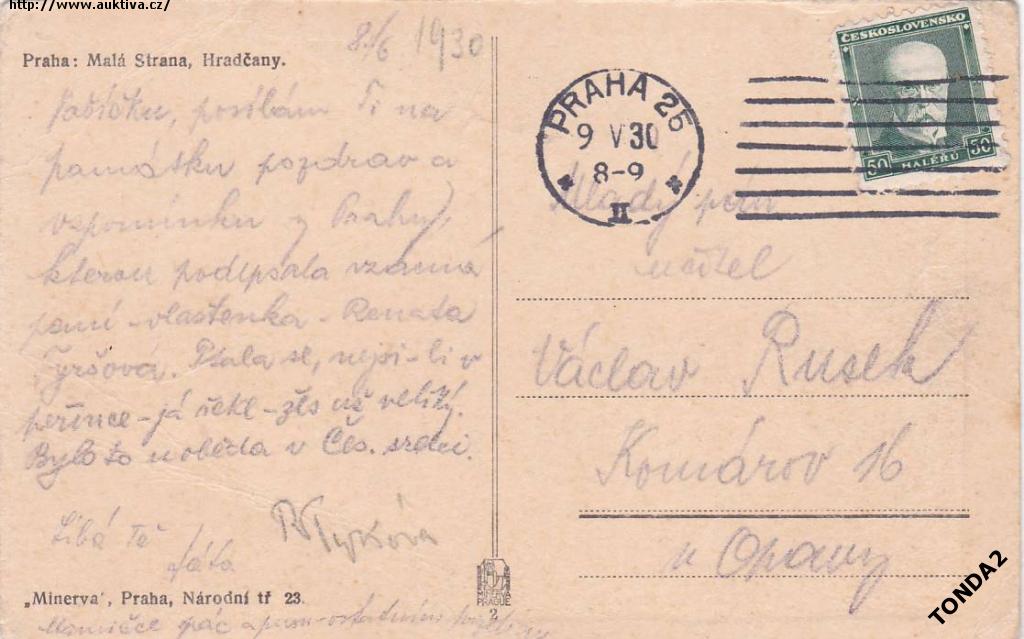 http://www.auktiva.cz/
8./6 1930
Praha: Malá Strana, Hradčany.
ČESKOSLOVENSKO
50 HALÉŘŮ 50
PRAHA 25
9 V 30
8-9
II
posílám Ti na
památku pozdrav a
vzpomínku z Prahy,
kterou podepsala vzácná
paní - vlastenka - Renata
Tyršová. Ptala se, nejsi-li v
peřince - já řekl - žes už veliký.
Bylo to u oběda v Čes. srdci.
Líbá Tě
táta
R Tyršová
Mladý pán
učitel
Václav Rusek
Komárov 16
u Opavy
MINERVA
PRAGUE
2
„Minerva', Praha, Národní tř 23.
TONDA2